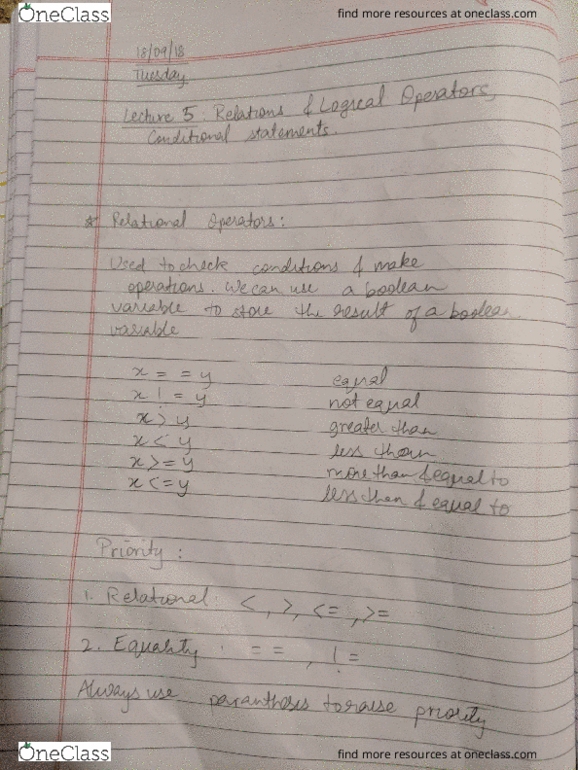 OneClass
find more resources at oneclass.com
18/09/18
Tuesday
Lecture 5: Relations & Logical Operators,
Conditional statements.
* Relational Operators:
Used to check conditions & make
operations. We can use a boolean
variable to store the result of a boolean
variable
x = = y equal
x ! = y not equal
x > y greater than
x < y less than
x >= y more than & equal to
x <= y less than & equal to
Priority:
1. Relational: <, >, <=, >=
2. Equality: = =, ! =
Always use paranthoses to raise priority
OneClass
find more resources at oneclass.com